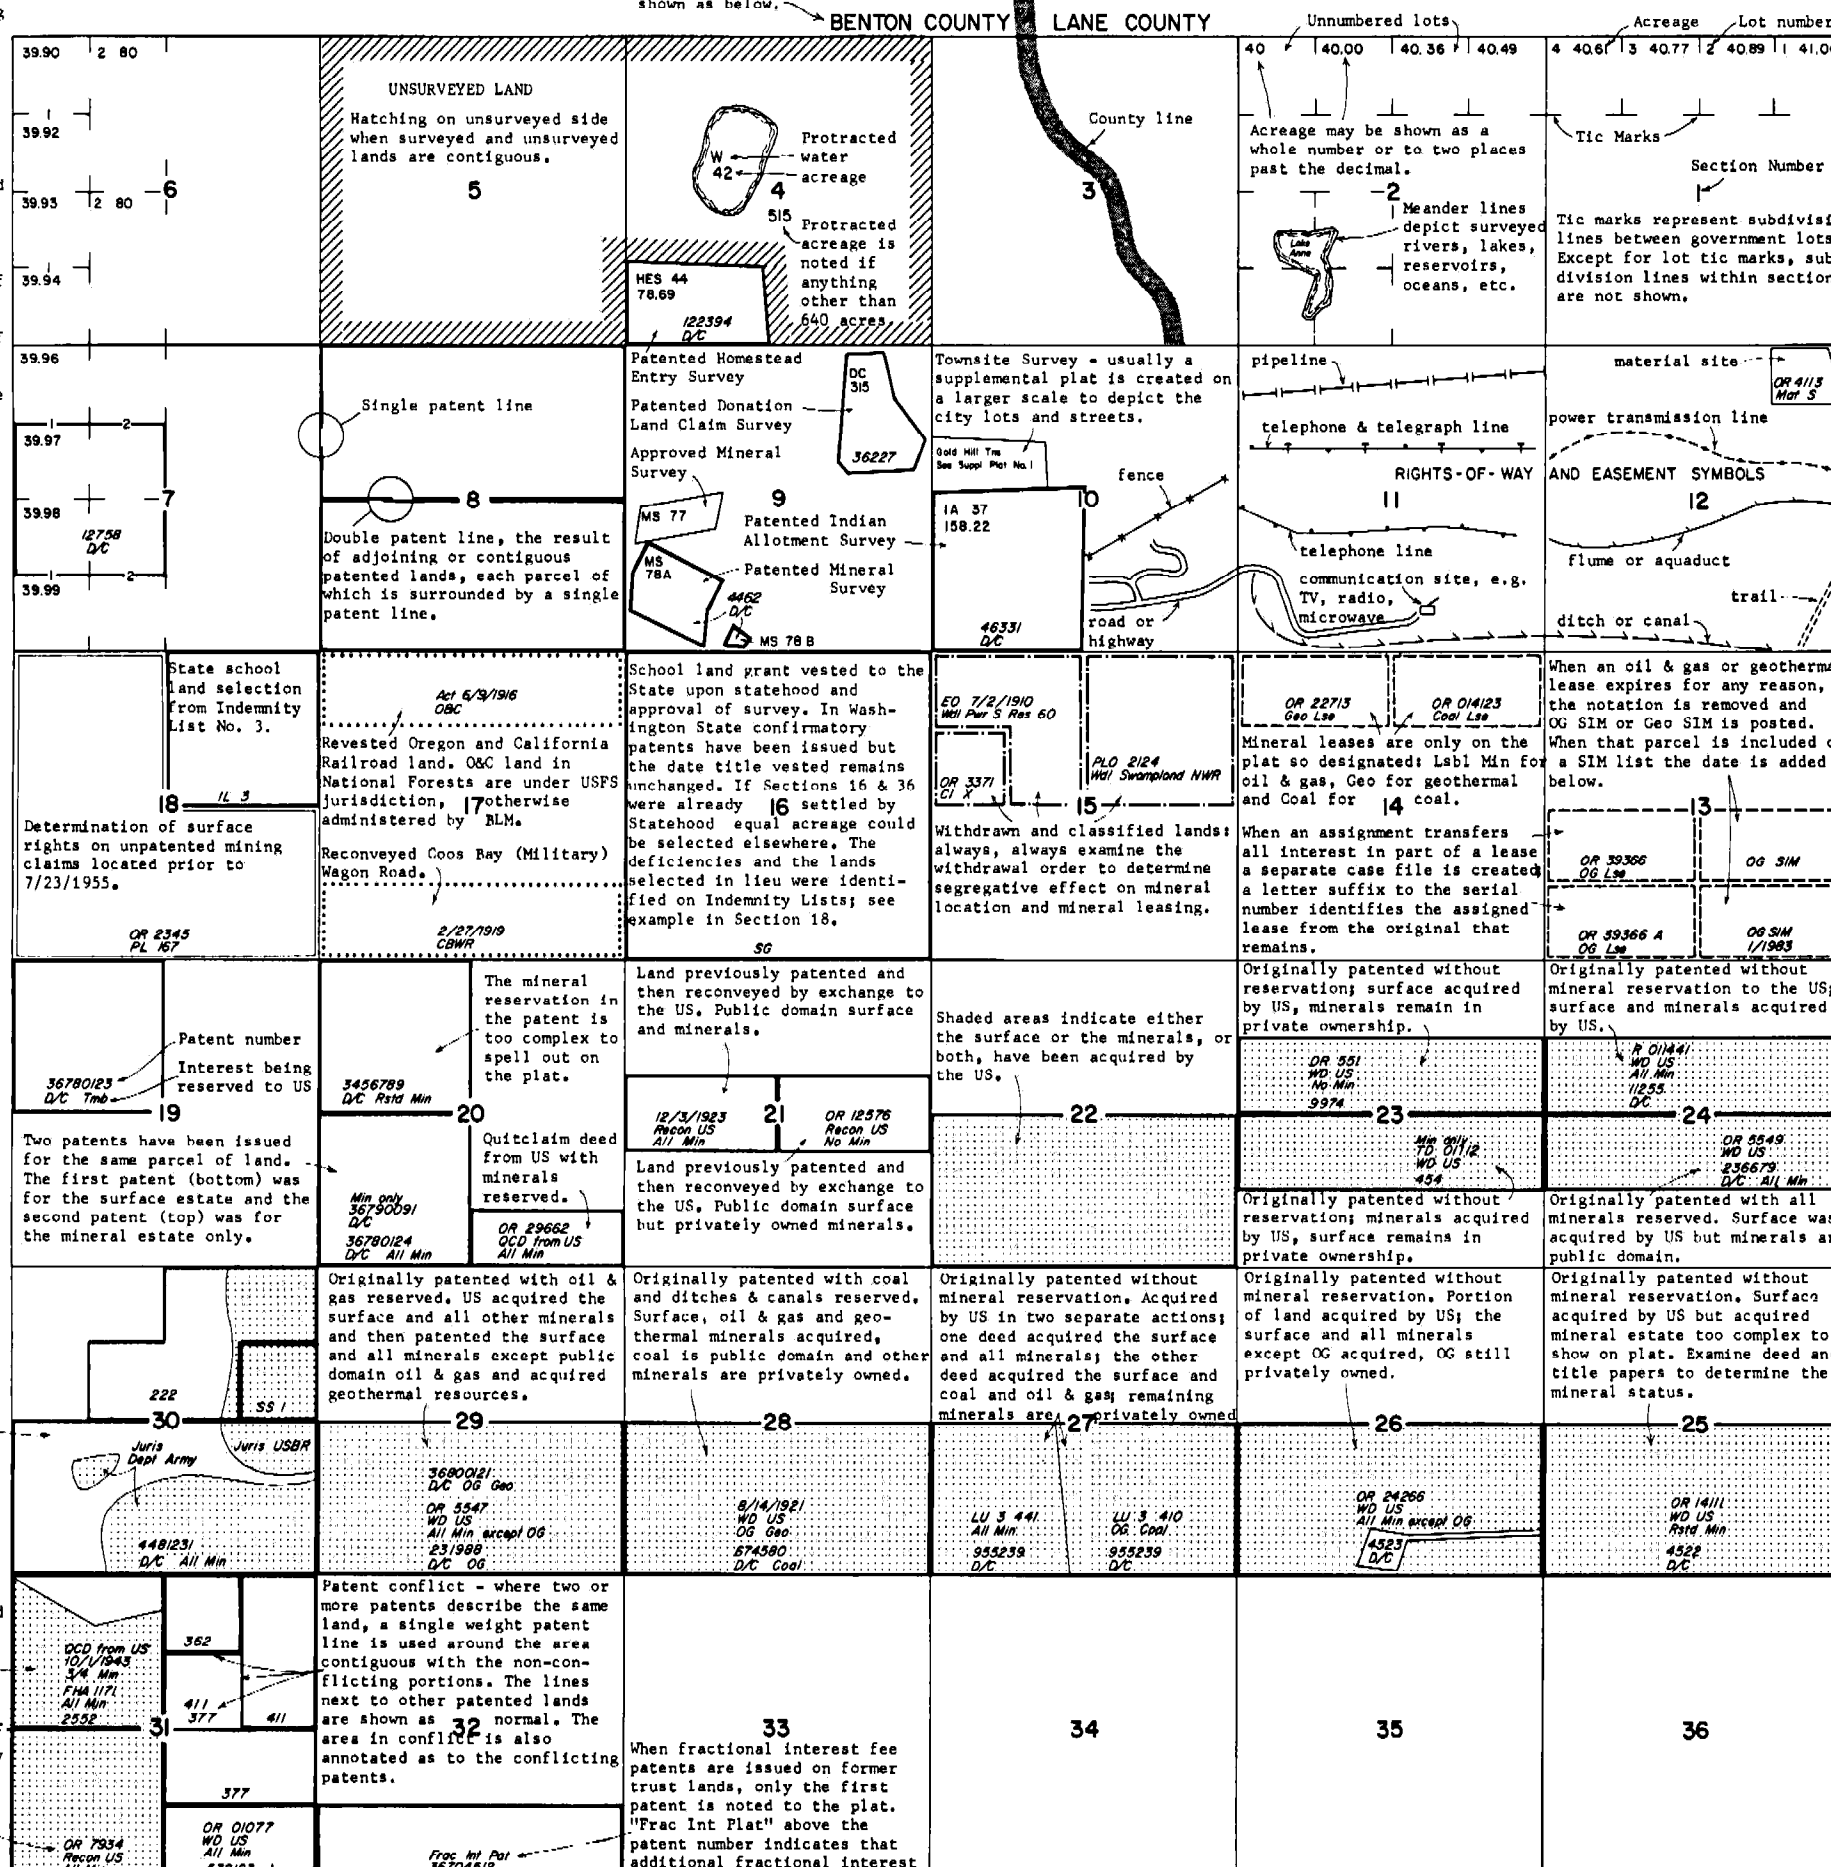 shown as below.
BENTON COUNTY LANE COUNTY
Unnumbered lots
Acreage
Lot number
39.90 2 80
1
39.92
39.93 2 80
6
39.94
UNSURVEYED LAND
Hatching on unsurveyed side
when surveyed and unsurveyed
lands are contiguous.
5
W
42
Protracted
water
acreage
4
515
Protracted
acreage is
noted if
anything
other than
640 acres.
HES 44
78.69
122394
D/C
County line
3
40 40.00 40.36 40.49
Acreage may be shown as a
whole number or to two places
past the decimal.
2
Lake
Anne
Meander lines
depict surveyed
rivers, lakes,
reservoirs,
oceans, etc.
4 40.61 3 40.77 2 40.89 1
Tic Marks
Section Number
1
Tic marks represent
lines between government lots
Except for lot tic marks,
division lines within section
are not shown.
39.96
1 2
39.97
7
39.98
12758
D/C
1 2
39.99
Single patent line
8
Double patent line, the result
of adjoining or contiguous
patented lands, each parcel of
which is surrounded by a single
patent line.
Patented Homestead
Entry Survey
Patented Donation
Land Claim Survey
Approved Mineral
Survey
DC
315
36227
9
MS 77
Patented Indian
Allotment Survey
MS
78A
Patented Mineral
Survey
4462
D/C
MS 78 B
Townsite Survey - usually a
supplemental plat is created on
a larger scale to depict the
city lots and streets.
Gold Hill Tns
See Suppl Plat No. 1
10
fence
IA 37
158.22
46331
D/C
road or
highway
pipeline
telephone & telegraph line
RIGHTS-OF-WAY AND EASEMENT SYMBOLS
11
telephone line
communication site, e.g.
TV, radio,
microwave
material site
OR 4113
Mat S
power transmission line
12
flume or aquaduct
trail
ditch or canal
State school
land selection
from Indemnity
List No. 3.
18
IL 3
Determination of surface
rights on unpatented mining
claims located prior to
7/23/1955.
OR 2345
PL 167
Act 6/9/1916
O&C
Revested Oregon and California
Railroad land. O&C land in
National Forests are under USFS
jurisdiction, 17 otherwise
administered by BLM.
Reconveyed Coos Bay (Military)
Wagon Road.
2/27/1919
CBWR
School land grant vested to the
State upon statehood and
approval of survey. In Wash-
ington State confirmatory
patents have been issued but
the date title vested remains
unchanged. If Sections 16 & 36
were already 16 settled by
Statehood equal acreage could
be selected elsewhere. The
deficiencies and the lands
selected in lieu were identi-
fied on Indemnity Lists; see
example in Section 18.
SG
EO 7/2/1910
Wdl Pwr S Res 60
OR 3371
Cl X
PLO 2124
Wdl Swampland NWR
15
Withdrawn and classified lands:
always, always examine the
withdrawal order to determine
segregative effect on mineral
location and mineral leasing.
OR 22713
Geo Lse
OR 014123
Coal Lse
Mineral leases are only on the
plat so designated: Lsbl Min for
oil & gas, Geo for geothermal
and Coal for 14 coal.
When an assignment transfers
all interest in part of a lease
a separate case file is created;
a letter suffix to the serial
number identifies the assigned
lease from the original that
remains.
When an oil & gas or
lease expires for any reason,
the notation is removed and
OG SIM or Geo SIM is posted.
When that parcel is included
a SIM list the date is added
below.
13
OR 39366
OG Lse
OG SIM
OR 39366 A
OG Lse
OG SIM
1/1983
Patent number
Interest being
reserved to US
36780123
D/C Tmb
19
Two patents have been issued
for the same parcel of land.
The first patent (bottom) was
for the surface estate and the
second patent (top) was for
the mineral estate only.
The mineral
reservation in
the patent is
too complex to
spell out on
the plat.
3456789
D/C Rstd Min
20
Quitclaim deed
from US with
minerals
reserved.
Min only
36790091
D/C
36780124
D/C All Min
OR 29662
QCD from US
All Min
Land previously patented and
then reconveyed by exchange to
the US. Public domain surface
and minerals.
12/3/1923
Recon US
All Min
21
OR 12576
Recon US
No Min
Land previously patented and
then reconveyed by exchange to
the US. Public domain surface
but privately owned minerals.
Shaded areas indicate either
the surface or the minerals, or
both, have been acquired by
the US.
22
Originally patented without
reservation; surface acquired
by US, minerals remain in
private ownership.
OR 551
WD US
No Min
9974
23
Min only
TD 01112
WD US
454
Originally patented without
reservation; minerals acquired
by US, surface remains in
private ownership.
Originally patented without
mineral reservation to the US;
surface and minerals acquired
by US.
R 011441
WD US
All Min
11255
D/C
24
OR 5549
WD US
236679
D/C All Min
Originally patented with all
minerals reserved. Surface was
acquired by US but minerals
public domain.
222
SS 1
30
Juris
Dept Army
Juris USBR
4481231
D/C All Min
Originally patented with oil &
gas reserved. US acquired the
surface and all other minerals
and then patented the surface
and all minerals except public
domain oil & gas and acquired
geothermal resources.
29
36800121
D/C OG Geo
OR 5547
WD US
All Min except OG
231988
D/C OG
Originally patented with coal
and ditches & canals reserved.
Surface, oil & gas and geo-
thermal minerals acquired,
coal is public domain and other
minerals are privately owned.
28
8/14/1921
WD US
OG Geo
674580
D/C Coal
Originally patented without
mineral reservation. Acquired
by US in two separate actions;
one deed acquired the surface
and all minerals; the other
deed acquired the surface and
coal and oil & gas; remaining
minerals are privately owned
27
LU 3 441
All Min
955239
D/C
LU 3 410
OG Coal
955239
D/C
Originally patented without
mineral reservation. Portion
of land acquired by US; the
surface and all minerals
except OG acquired, OG still
privately owned.
26
OR 24266
WD US
All Min except OG
4523
D/C
Originally patented without
mineral reservation. Surface
acquired by US but acquired
mineral estate too complex to
show on plat. Examine deed
title papers to determine the
mineral status.
25
OR 14111
WD US
Rstd Min
4522
D/C
QCD from US
10/1/1943
3/4 Min
FHA 1171
All Min
2552
362
411
377
411
31
377
OR 7934
Recon US
OR 01077
WD US
All Min
Patent conflict - where two or
more patents describe the same
land, a single weight patent
line is used around the area
contiguous with the non-con-
flicting portions. The lines
next to other patented lands
are shown as 32 normal. The
area in conflict is also
annotated as to the conflicting
patents.
Frac Int Pat
33
When fractional interest fee
patents are issued on former
trust lands, only the first
patent is noted to the plat.
"Frac Int Plat" above the
patent number indicates that
additional fractional interest
34
35
36